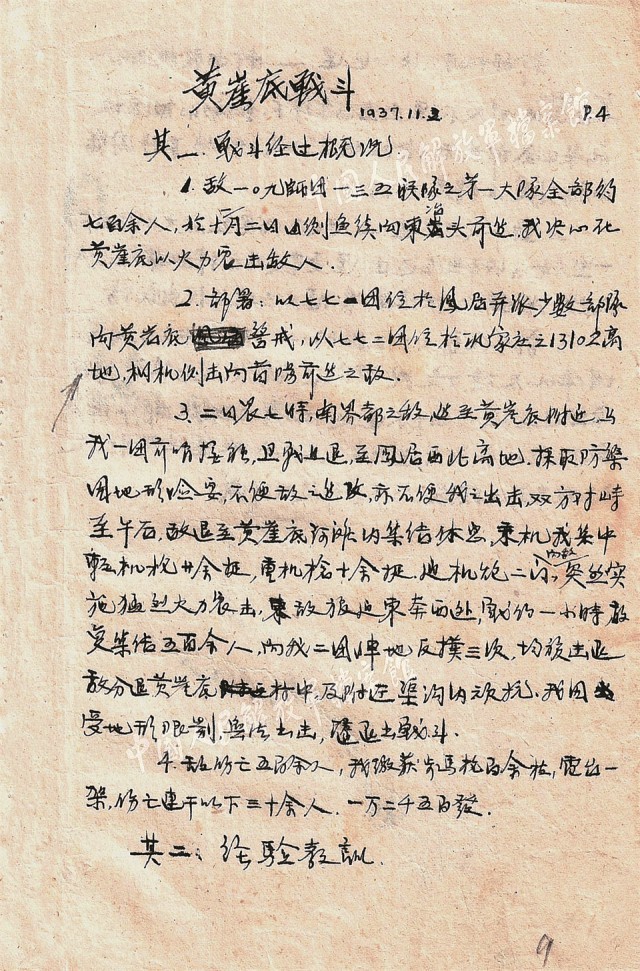 黄崖底戰斗
1937.11.2
P.4
其一、戰斗经过概况.
1. 敌一〇九師团一三五联隊之第一大隊全部约
七百余人，於十一月二日由側魚续向東冶头前进，我决心在
黄崖底以火力袭击敌人.
2. 部署：以七七一团位於鳳居并派少數部隊
向黄岩底警戒，以七七二团位於巩家庄之1310.2高
地，相机侧击向昔陽前进之敌.
3. 二日晨七時，南界都之敌，进至黄崖底附近，与
我一团前哨接触，且戰且退，至鳳居西北高地，採取防禦
因地形险要，不便敌之进攻，亦不便我之出击，双方对峙
至午后，敌退至黄崖底河滩内集结休息，乘机我集中
輕机枪廿余挺，重机枪十余挺，迫机炮二门，向敌突然实
施猛烈火力袭击，敌狼狈東奔西跑，戰约一小時敌
复集结五百余人，向我二团陣地反撲三次，均被击退
敌分退黄崖底村中，及附近渠沟内顽抗，我因
受地形限制，無法出击，遂退出戰斗.
4. 敌伤亡五百余人，我缴获步馬枪百余枝，電台一
架，伤亡連干以下三十余人. 一万二千五百發.
其二：经验教訓.
9
中國人民解放軍檔案館
中國人民解放軍檔案館